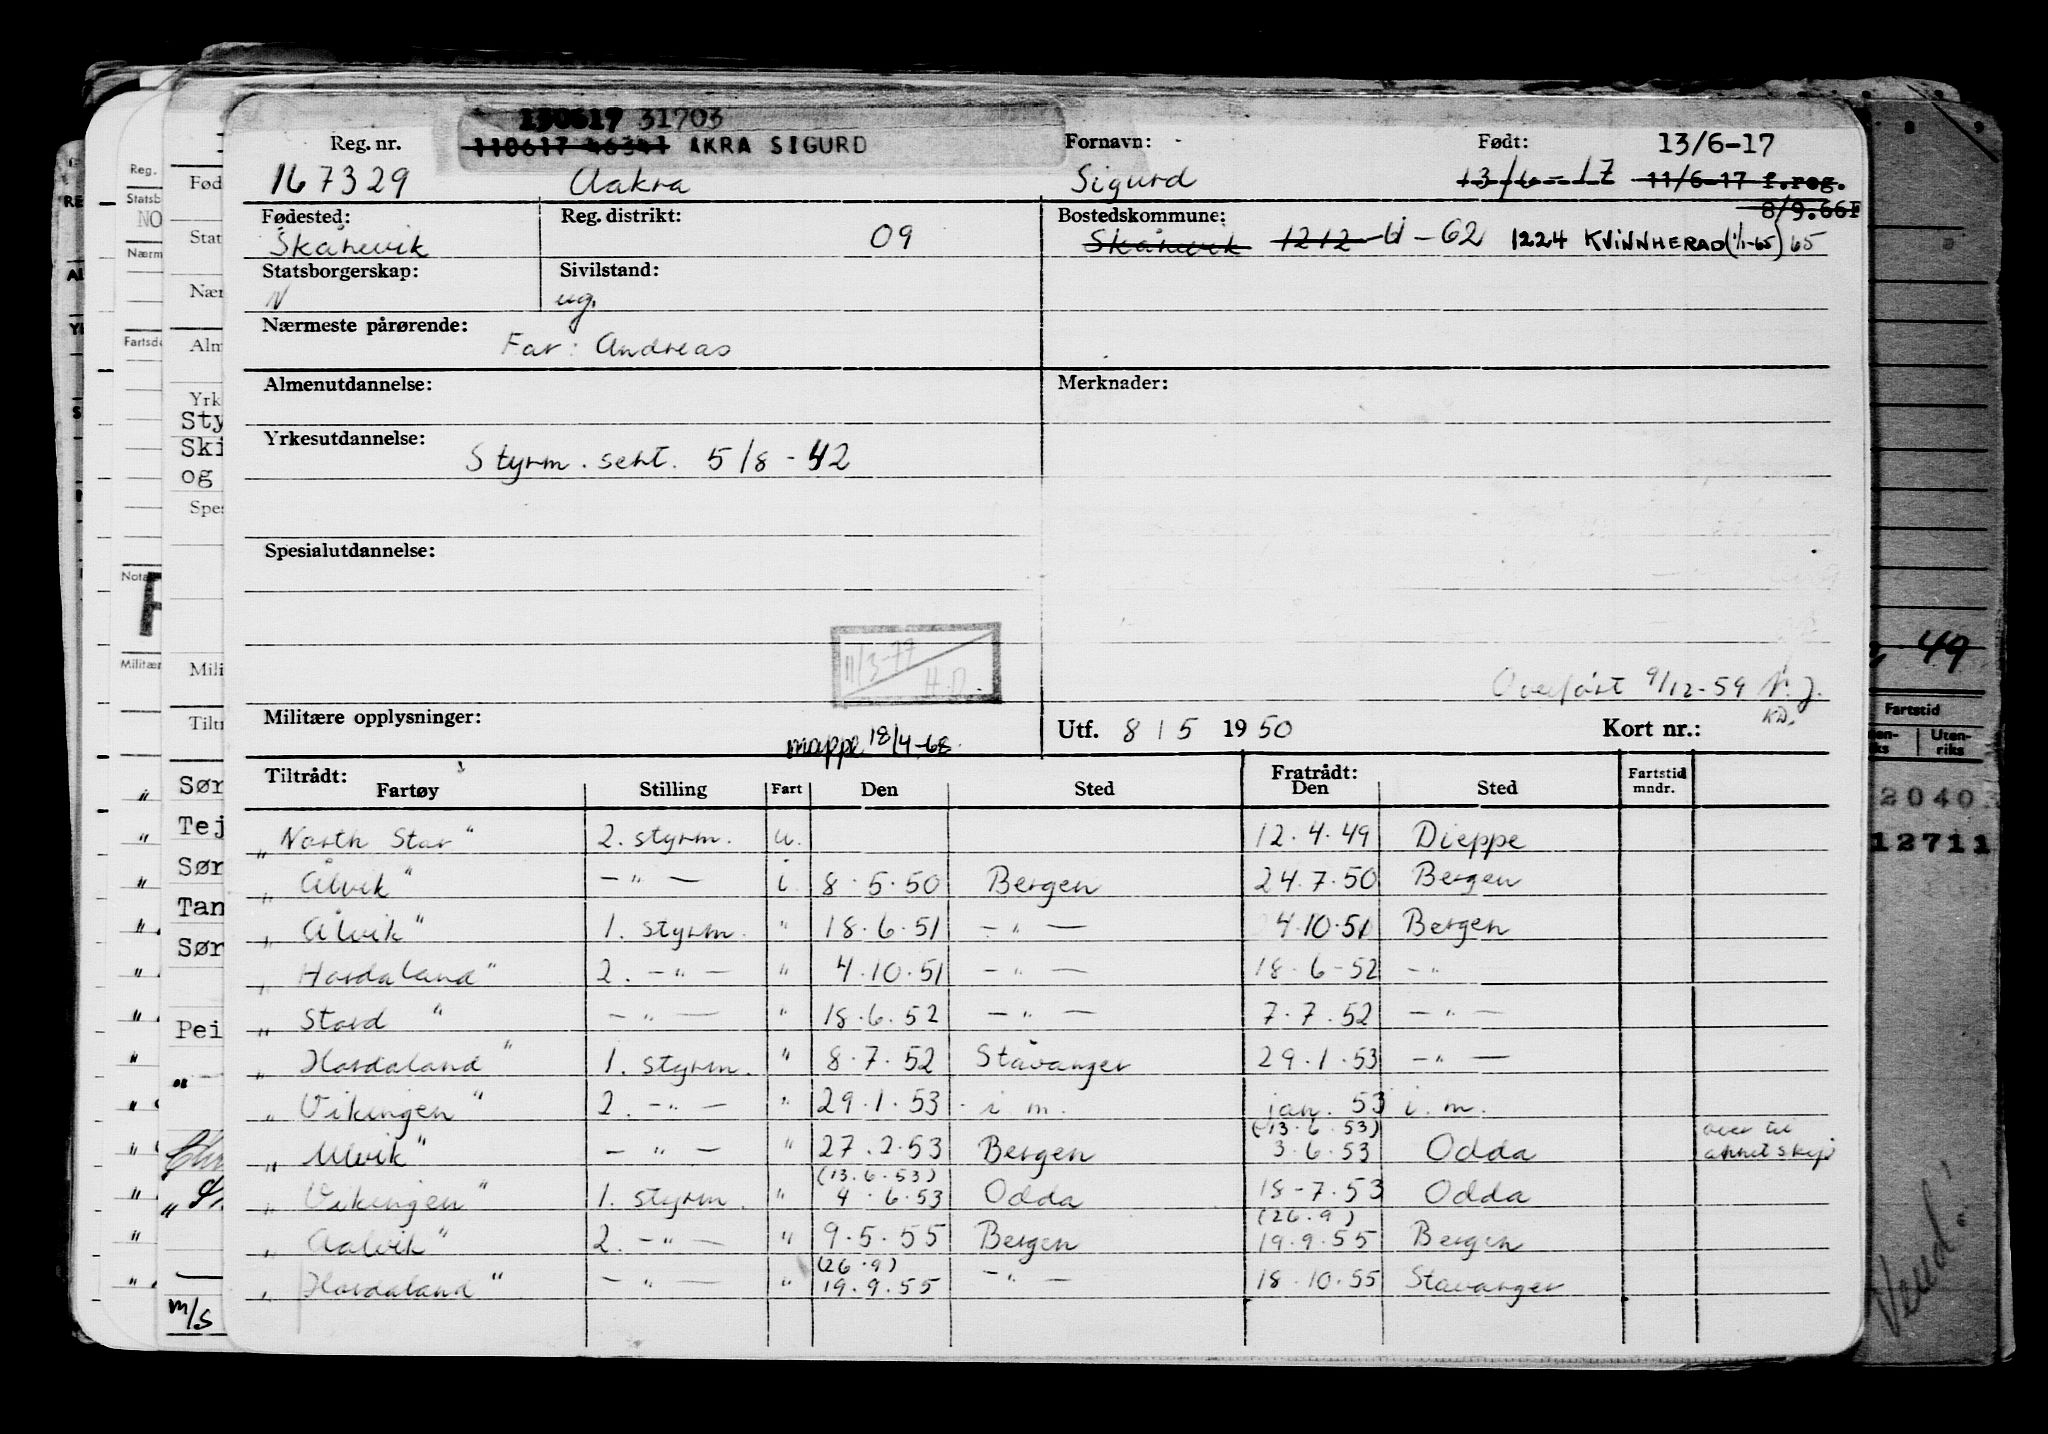 130617 31703
Reg. nr. 110617 46341 AKRA SIGURD Fornavn: Født: 13/6-17
167329 Aakra Sigurd 13/6-17 11/6-17 f.reg.
8/9.66F
Fødested: Reg. distrikt: Bostedskommune:
Skånevik 09 Skånevik 1212 - 62 1224 KVINNHERAD (1/1-65) 65
Statsborgerskap: Sivilstand:
N ug.
Nærmeste pårørende:
Far: Andreas
Almenutdannelse: Merknader:
Yrkesutdannelse:
Styrm. sert. 5/8-42
Spesialutdannelse:
11/3-77
H.D.
Overført 9/12-59 N.J.
KD.
Militære opplysninger: Utf. 8/5 1950 Kort nr.:
mappe 18/4-68.
Tiltrådt: Fratrådt: Fartstid
Fartøy Stilling Fart Den Sted Den Sted mndr.
„North Star" 2. styrm. u. 12.4.49 Dieppe
„Ålvik" -"- i 8.5.50 Bergen 24.7.50 Bergen
„Ålvik" 1. styrm. " 18.6.51 -"- 4.10.51 Bergen
„Hordaland" 2. -"- " 4.10.51 -"- 18.6-52 -"
„Stord" -"- " 18.6.52 -"- 7.7.52 -"-
„Hordaland" 1. styrm. " 8.7.52 Stavanger 29.1.53 -"-
„Vikingen" 2. -"- " 29.1.53 i.m. jan. 53 i.m.
(13.6.53) over til
„Ulvik" -"- " 27.2.53 Bergen 3.6.53 Odda annet skip
(13.6.53)
„Vikingen" 1. styrm. " 4.6.53 Odda 18-7.53 Odda
(26.9)
„Aalvik" 2. -"- " 9.5.55 Bergen 19.9.55 Bergen
(26.9)
„Hordaland" -"- " 19.9.55 -"- 18.10.55 Stavanger
Reg.
Statsb
NO
Nærm
Fartsd
Nota
Militær
Fød
Stat
Nær
Alm
Yrk
Sty
Ski
og
Spes
Mili
Tiltr
Sør
Tej
Sør
Tan
Sør
Pei
m/s
49
Fartstid
Uten-
riks
20403
12711
Vend!